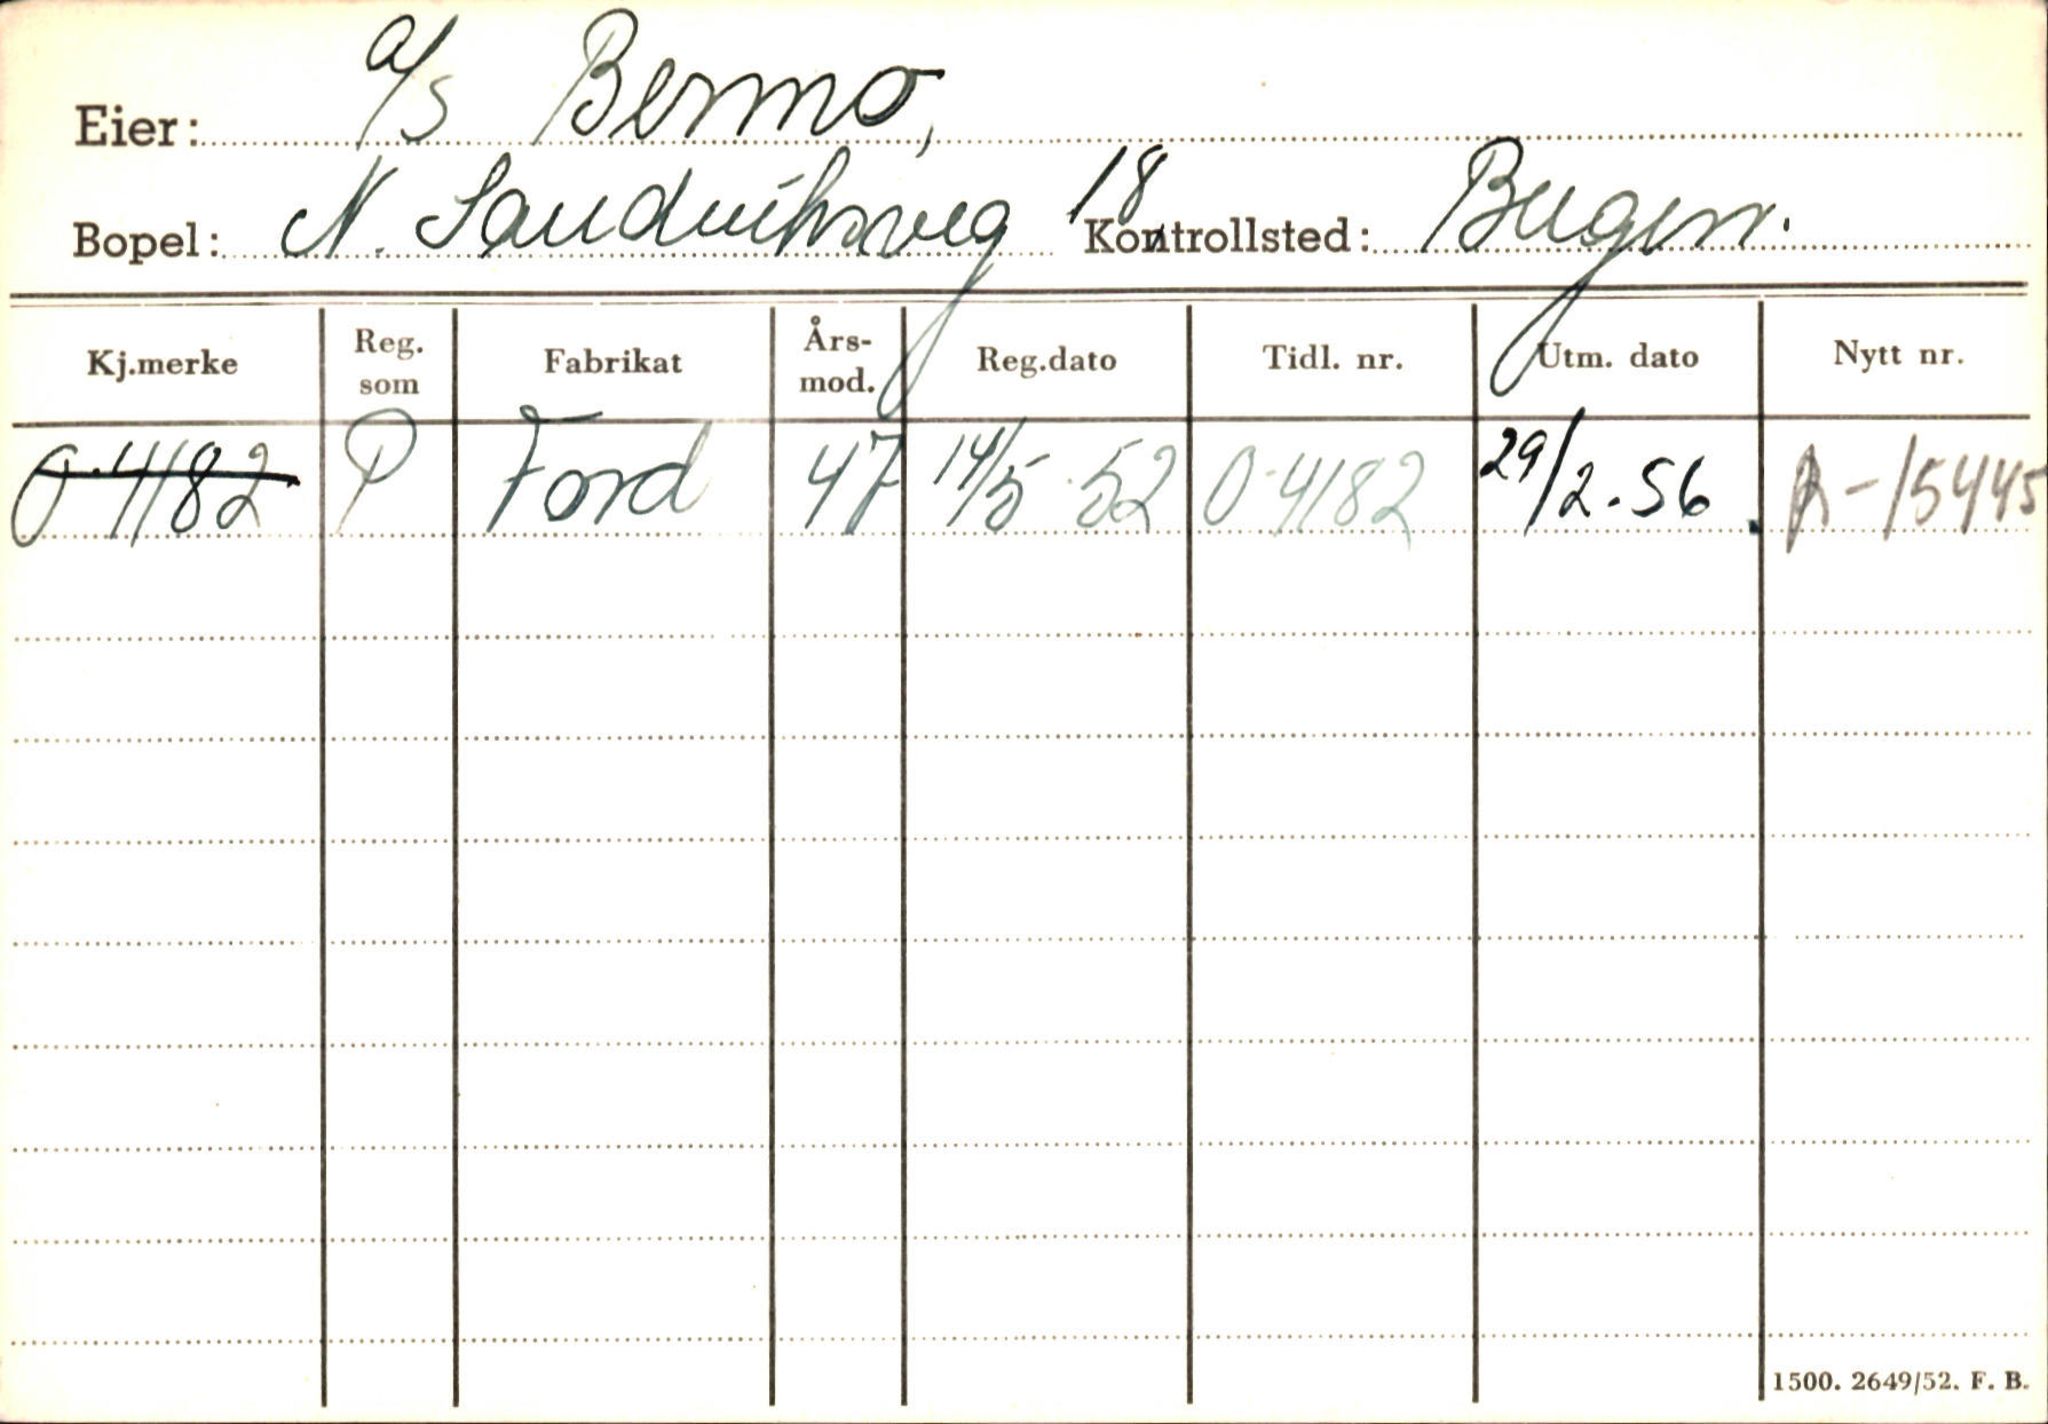 Eier: A/S Bermo,
Bopel: N. Sandviksveg 18 Kontrollsted: Bergen.
Kj.merke Reg. som Fabrikat Års-mod. Reg.dato Tidl. nr. Utm. dato Nytt nr.
O-4182 P Ford 47 14/5 52 O-4182 29/2-56 R-15445
1500. 2649/52. F. B.